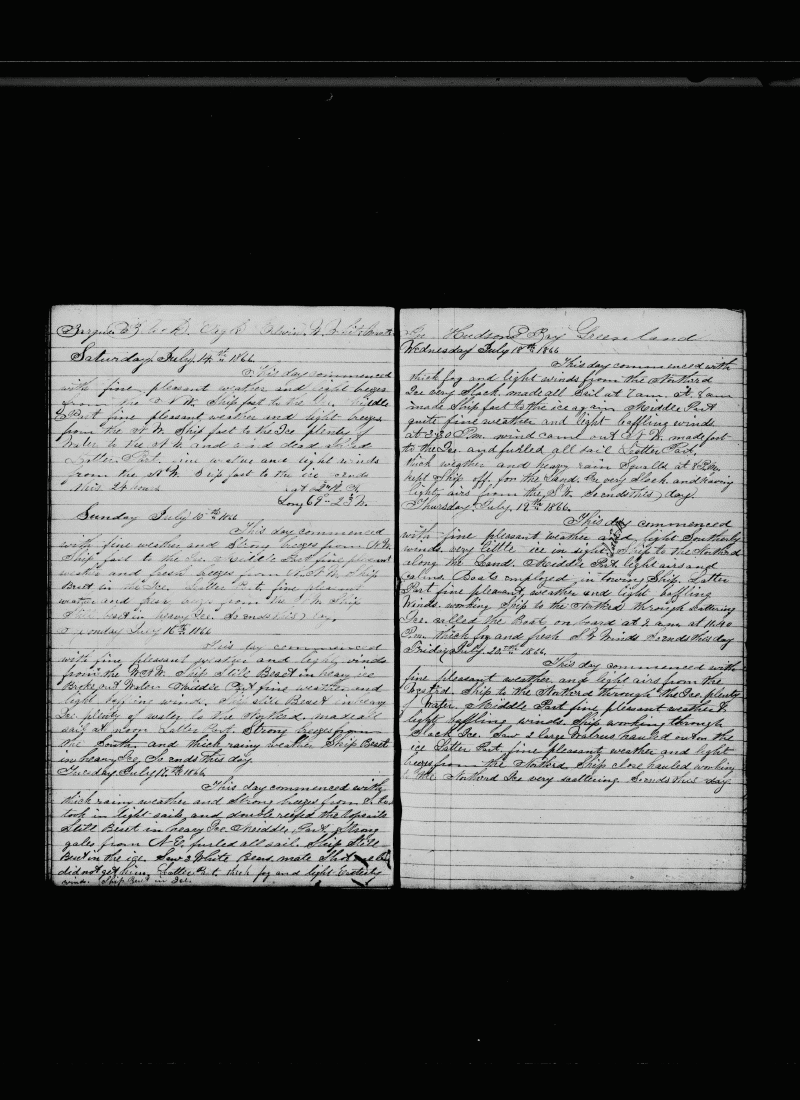 Saturday July 14th 1866
This day commenced
with fine pleasant weather and light breezes
from the N.W. Ship fast to the Ice. Middle
Part fine pleasant weather and light breezes
from the N.W. Ship fast to the Ice plenty of
Water to the N.W. and
Latter Part fine weather and light winds
from the N.W. Ship fast to the ice So ends
this 24 hours
Long 69-23 W.
Sunday July 15th 1866
This day commenced
with fine weather and Strong breezes from N.W.
Ship fast to the Ice Middle Part fine pleasant
weather and fresh breezes from N.N.W. Ship
Beset in the Ice. Latter Part fine pleasant
weather and from the N.W. Ship
Still Beset in heavy Ice. So ends this Day.
Monday July 16th 1866
This day commenced
with fine pleasant weather and light winds
from the W.N.W. Ship Still Beset in heavy ice
Broke out Water Middle Part fine weather and
light baffling winds. Ship still Beset in heavy
Ice. plenty of water to the Northerd. made all
sail at noon Latter Part Strong breezes from
the South and thick rainy weather Ship Beset
in heavy Ice. So ends this day.
Tuesday July 17th 1866
This day commenced with
thick rainy weather and Strong breezes from
took in light sails and double reefed the Topsails
Still Beset in heavy Ice Middle Part Strong
gales from N.E. furled all sail. Ship Still
Beset in the ice. Saw 2 White Bears. mate Shot
did not get him. Latter Part thick fog and light Easterly
winds. Ship Beset in Ice.
Hudsons Bay Greenland
Wednesday July 18th 1866
This day commenced with
thick fog and light winds from the Northerd
Ice very Slack. made all Sail at 7 am. At 8 am
made Ship fast to the ice again Middle Part
quite fine weather and light baffling winds
at 3.30 P.m. wind came out N.W. made fast
to the Ice and furled all sail Latter Part
thick weather and heavy rain Squalls at 8 P.m.
kept Ship off for the Land. Ice very Slack and having
light airs from the S.W. So ends this day
Thursday July 19th 1866
This day commenced
with fine pleasant weather and light Southerly
winds. very little ice in sight Ship to the Northerd
along the Land. Middle Part light airs and
calms Boats employed in towing Ship. Latter
Part fine pleasant weather and light baffling
Winds. working Ship to the Northerd through scattering
Ice. called the boat on board at 2 am. at 11.40
P.m. thick fog and fresh Winds So ends this day
Friday July 20th 1866
This day commenced with
fine pleasant weather and light airs from the
Westerd. Ship to the Northerd through the Ice plenty
of Water. Middle Part fine pleasant weather &
light baffling winds Ship working through
Slack Ice. Saw 2 large Walrus hauled out on the
ice Latter Part fine pleasant weather and light
breezes from the Northerd. Ship close hauled working
to the Northerd Ice very scattering So ends this day